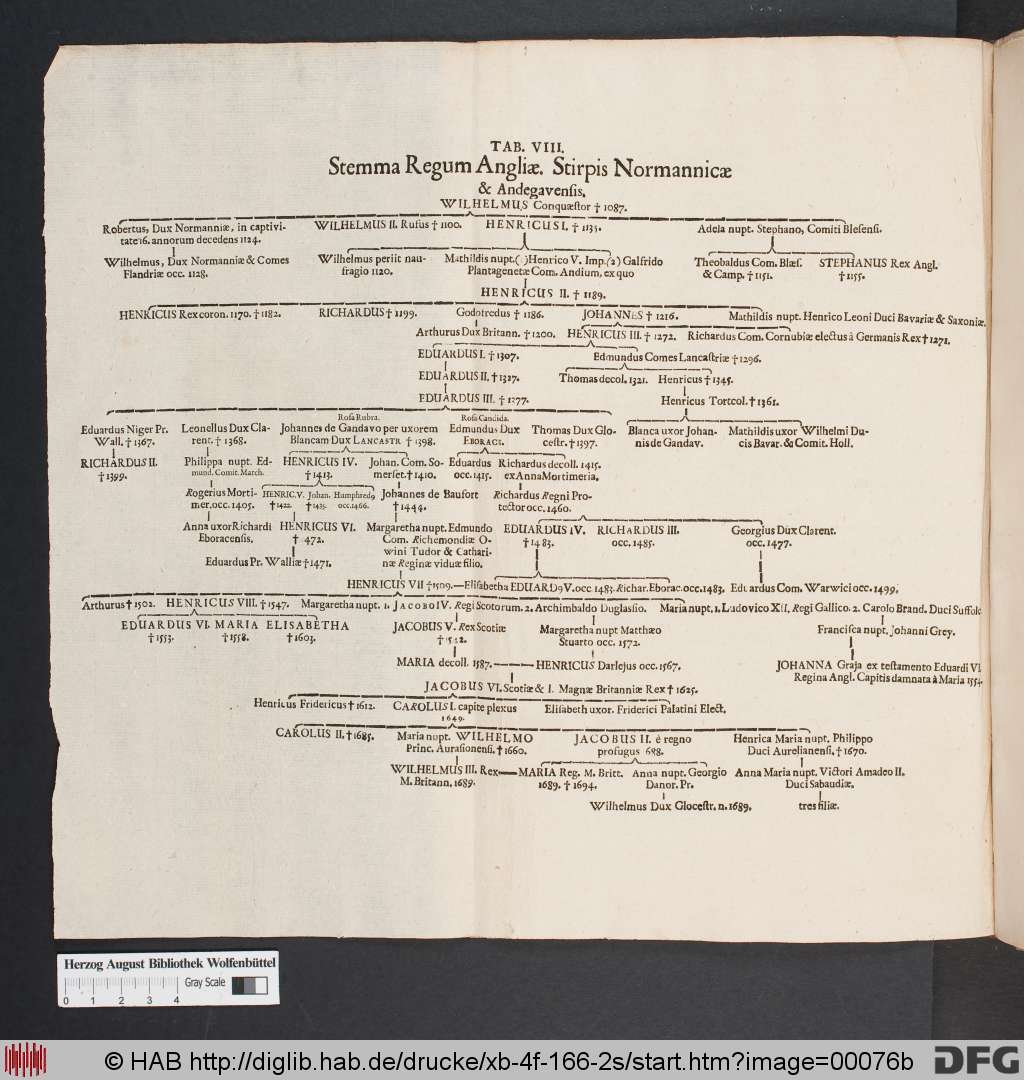 TAB. VIII.
Stemma Regum Angliæ. Stirpis Normannicæ
& Andegavensis.
WILHELMUS Conquæstor † 1087.
Robertus, Dux Normanniæ, in captivi-
tate 16. annorum decedens 1124.
WILHELMUS II. Rufus † 1100.
HENRICUS I. † 1135.
Adela nupt. Stephano, Comiti Blesensi.
Wilhelmus, Dux Normanniæ & Comes
Flandriæ occ. 1128.
Wilhelmus periit nau-
fragio 1120.
Mathildis nupt. ( ) Henrico V. Imp. (2) Galfrido
Plantagenetæ Com. Andium, ex quo
Theobaldus Com. Blæs.
& Camp. † 1151.
STEPHANUS Rex Angl.
† 1155.
HENRICUS II. † 1189.
HENRICUS Rex coron. 1170. † 1182.
RICHARDUS † 1199.
Godofredus † 1186.
JOHANNES † 1216.
Mathildis nupt. Henrico Leoni Duci Bavariæ & Saxoniæ.
Arthurus Dux Britann. † 1200.
HENRICUS III. † 1272.
Richardus Com. Cornubiæ electus à Germanis Rex † 1271.
EDUARDUS I. † 1307.
Edmundus Comes Lancastriæ † 1296.
EDUARDUS II. † 1327.
Thomas decol. 1321.
Henricus † 1345.
EDUARDUS III. † 1277.
Henricus Tortcol. † 1361.
Eduardus Niger Pr.
Wall. † 1367.
Leonellus Dux Cla-
rent. † 1368.
Rosa Rubra.
Johannes de Gandavo per uxorem
Blancam Dux LANCASTR † 1398.
Rosa Candida.
Edmundus Dux
EBORACI.
Thomas Dux Glo-
cestr. † 1397.
Blanca uxor Johan-
nis de Gandav.
Mathildis uxor Wilhelmi Du-
cis Bavar. & Comit. Holl.
RICHARDUS II.
† 1399.
Philippa nupt. Ed-
mund. Comit. March.
HENRICUS IV.
† 1413.
Johan. Com. So-
merset. † 1410.
Eduardus
occ. 1415.
Richardus decoll. 1415.
ex Anna Mortimeria.
Rogerius Morti-
mer. occ. 1405.
HENRIC. V.
† 1422.
Johan.
† 1435.
Humphred9
occ. 1466.
Johannes de Baufort
† 1444.
Richardus Regni Pro-
tector occ. 1460.
Anna uxor Richardi
Eboracensis.
HENRICUS VI.
† 472.
Margaretha nupt. Edmundo
Com. Richemondiæ O-
wini Tudor & Cathari-
næ Reginæ viduæ filio.
EDUARDUS IV.
† 1483.
RICHARDUS III.
occ. 1485.
Georgius Dux Clarent.
occ. 1477.
Eduardus Pr. Walliæ † 1471.
HENRICUS VII † 1509. — Elisabetha EDUARD9 V. occ 1483. Richar. Eborac. occ. 1483. Eduardus Com. Warwici occ. 1499.
Arthurus † 1502. HENRICUS VIII. † 1547. Margaretha nupt. 1. JACOBO IV. Regi Scotorum. 2. Archimbaldo Duglassio. Maria nupt. 1. Ludovico XII. Regi Gallico. 2. Carolo Brand. Duci Suffolc
EDUARDUS VI. MARIA ELISABETHA
† 1553. † 1558. † 1603.
JACOBUS V. Rex Scotiæ
Margaretha nupt Matthæo
Stuarto occ. 1572.
Francisca nupt. Johanni Grey.
MARIA decoll. 1587. — HENRICUS Darlejus occ. 1567.
JOHANNA Graja ex testamento Eduardi VI.
Regina Angl. Capitis damnata à Maria 1554.
JACOBUS VI. Scotiæ & I. Magnæ Britanniæ Rex † 1625.
Henricus Fridericus † 1612.
CAROLUS I. capite plexus
1649.
Elisabeth uxor. Friderici Palatini Elect.
CAROLUS II. † 1685.
Maria nupt. WILHELMO
Princ. Aurasionensi. † 1660.
JACOBUS II. è regno
profugus 688.
Henrica Maria nupt. Philippo
Duci Aurelianensi. † 1670.
WILHELMUS III. Rex — MARIA Reg. M. Britt.
M. Britann. 1689. 1689. † 1694.
Anna nupt. Georgio
Danor. Pr.
Anna Maria nupt. Victori Amadeo II.
Duci Sabaudiæ.
Wilhelmus Dux Glocestr. n. 1689.
tres filiæ.
Herzog August Bibliothek Wolfenbüttel
Gray Scale
0 1 2 3 4
© HAB http://diglib.hab.de/drucke/xb-4f-166-2s/start.htm?image=00076b
DFG